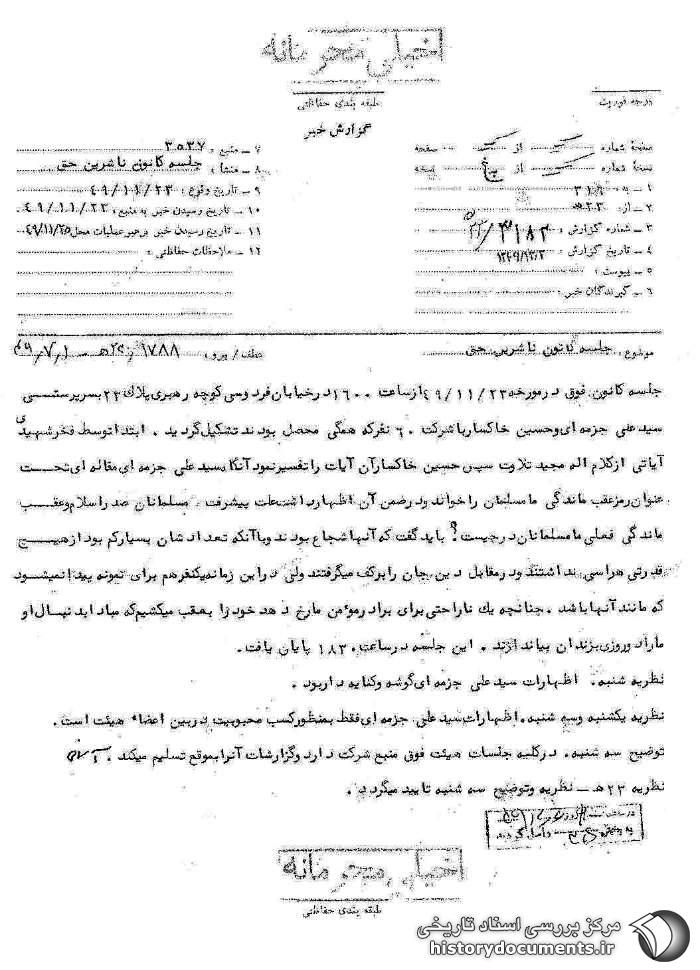 خیلی محرمانه
طبقه بندی حفاظتی
درجه فوریت
گزارش خبر
صفحهٔ شماره یک از یک صفحه
نسخهٔ شماره یک از پنج نسخه
۱ ـ به : ۳۱۸
۲ ـ از : ۲۳ه
۳ ـ شماره گزارش : ۴۱۸۲/
۴ ـ تاریخ گزارش : ۱۳۴۹/۱۲/۲
۵ ـ پیوست :
۶ ـ گیرندگان خبر :
۷ ـ منبع : ۳۵۳۷
۸ ـ منشاء : جلسه کانون ناشرین حق
۹ ـ تاریخ وقوع : ۴۹/۱۱/۲۳
۱۰ ـ تاریخ رسیدن خبر به منبع : ۴۹/۱۱/۲۳
۱۱ ـ تاریخ رسیدن خبر برهبر عملیات محل ۴۹/۱۱/۲۵
۱۲ ـ ملاحظات حفاظتی :
موضوع : جلسه کانون ناشرین حق
عطف / پیرو : ۱۷۸۸/۲۰ه ـ ۴۹/۷/۱
جلسه کانون فوق در مورخه ۴۹/۱۱/۲۳ از ساعت ۱۶۰۰ در خیابان فردوسی کوچه رهبری پلاک ۲۳ بسرپرستی
سید علی جزمه ای و حسین خاکسار با شرکت ۶۰ نفر که همگی محصل بودند تشکیل گردید . ابتدا توسط فخر شهیدی
آیاتی از کلام اله مجید تلاوت سپس حسین خاکسار آن آیات را تفسیر نمود آنگاه سید علی جزمه ای مقاله ای تحت
عنوان رمز عقب ماندگی ما مسلمان را خواند و در ضمن آن اظهار داشت علت پیشرفت مسلمانان صدر اسلام و عقب
ماندگی فعلی ما مسلمانان در چیست ؟ باید گفت که آنها شجاع بودند و با آنکه تعدادشان بسیار کم بود از هیچ
قدرتی هراسی نداشتند و در مقابل دین جان را بر کف میگرفتند ولی در این زمانه یکنفر هم برای نمونه پیدا نمیشود
که مانند آنها باشد . چنانچه یک ناراحتی برای برادر مؤمن ما رخ دهد خود را بعقب میکشیم که مبادا بدنبال او
ما را دو روزی بزندان بیاندازند . این جلسه در ساعت ۱۸۳۰ پایان یافت .
نظریه شنبه . اظهارات سید علی جزمه ای گوشه و کنایه دار بود .
نظریه یکشنبه و سه شنبه . اظهارات سید علی جزمه ای فقط بمنظور کسب محبوبیت در بین اعضاء هیئت است .
توضیح سه شنبه . در کلیه جلسات هیئت فوق منبع شرکت دارد و گزارشات آنرا بموقع تسلیم میکند .
نظریه ۲۳ه ـ نظریه و توضیح سه شنبه تایید میگردد .
خیلی محرمانه
طبقه بندی حفاظتی
مرکز بررسی اسناد تاریخی
historydocuments.ir